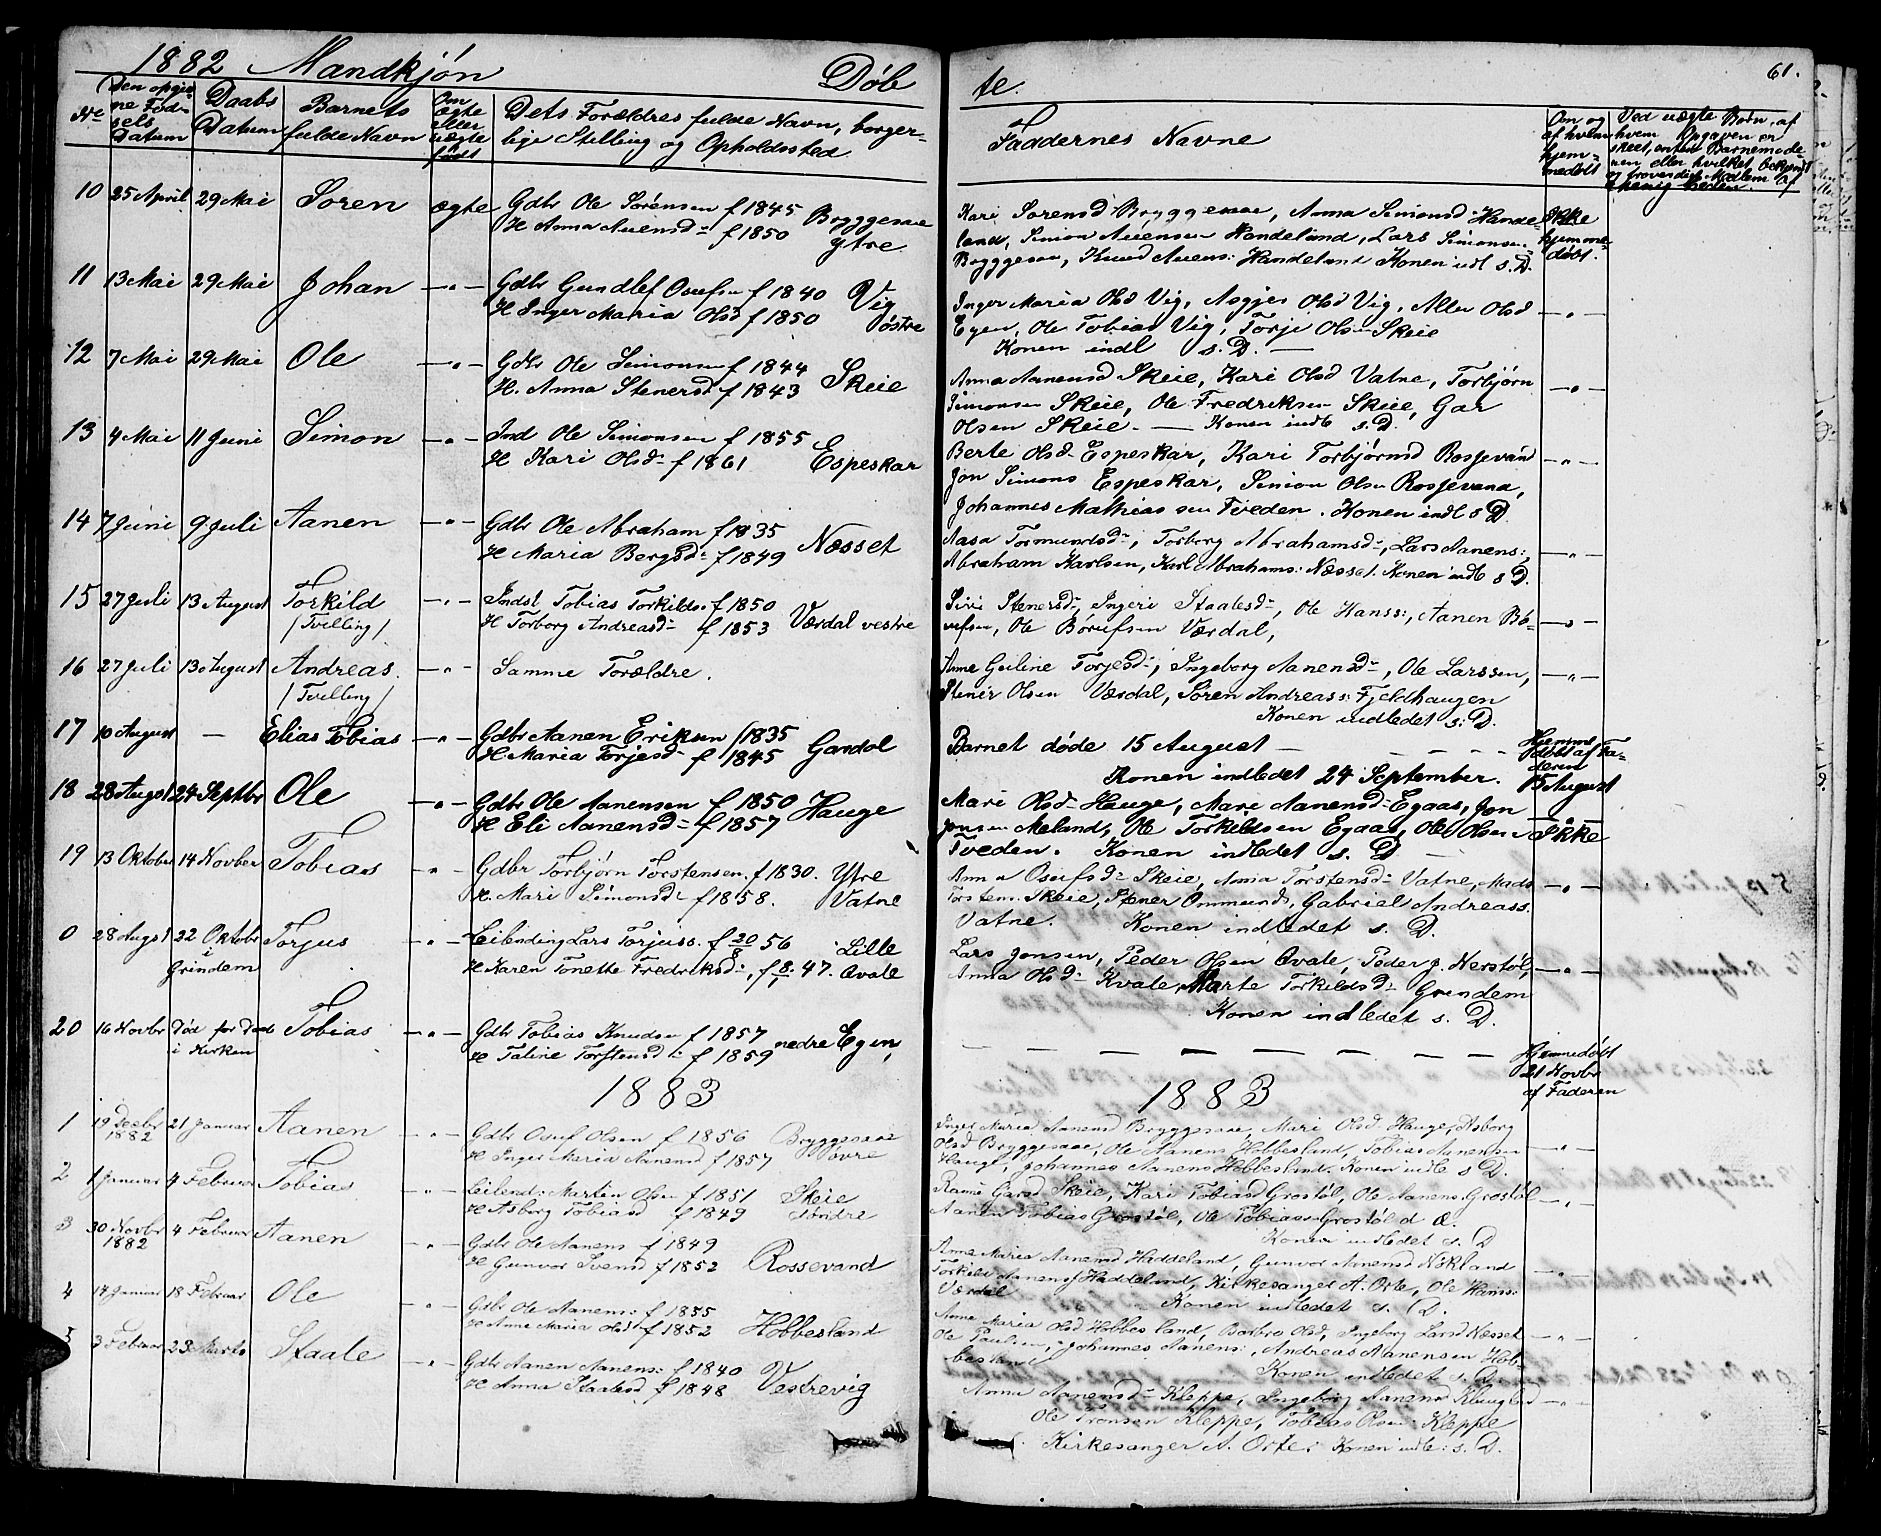 1882 Mandkjön Döb te. 61.
No Den opgivne Fødsels Datum Daabs Datum Barnets fulde Navn Om ægte eller uægte født Dets Forældres fulde Navn, borgerlige Stilling og Opholdssted
Faddernes Navne Om og af hvem hjemmedöbt Ved uægte Børn, af hvem Opgaven er skeet, enten Barnemoderen eller hvilket bekjendt og troværdigt Medlem af
10 25 April 29 Mai Soren ægte Gdbr Ole Sörensen f 1845 Bryggesaae
H Anna Auensd f 1850 ytre
Kari Sorensd Bryggesaae, Anna Simonsd Hande- Ikke
land, Simon Auensen Handeland, Lars Simonsen hjemme-
Bryggesaa, Knud Auens: Handeland Konen indl s. D. döbt.
11 13 Mai 29 Mai Johan -"- Gdbr Gundlef Osufsn f 1840 Vig
H Inger Maria Olsd f 1850 østre
Inger Maria Olsd Vig, Asgjer Olsd Vig, Aller Olsd -"-
Egen, Ole Tobias Vig, Torje Olsen Skeie
Konen indl s. D. —
12 7 Mai 29 Mai Ole -"- Gdbr Ole Simonsen f 1844 Skeie
H. Anna Stenersd f 1843
Anna Aanensd Skeie, Kari Olsd Vatne, Torbjörn -"-
Simonsen Skeie, Ole Fredriksen Skeie, Gar
Olsen Skeie. — Konen indl s. D.
13 4 Mai 11 Juni Simon -"- Ind Ole Simonsen f 1855 Espeskar
H Kari Olsd f 1861
Berte Olsd Espeskar, Kari Torbjörnsd Rossevand -"-
Jon Simons Espeskar, Simon Olsen Rossevand,
Johannes Mathiassen Tveden. Konen indl s D.
14 7 Juni 9 Juli Aanen -"- Gdbr Ole Abraham f 1835 Næsset
H Maria Bergsd f 1849
Aasa Tormundsd, Torborg Abrahamsd, Lars Aanens:, -"-
Abraham Karlsen, Karl Abrahams: Næsset. Konen indl s D.
15 27 Juli 13 August Torkild -"- Indst Tobias Torkilds: f 1850 Værdal vestre
/Tvilling/ H Torborg Andreasd f 1853
Siri Stenersd, Ingeri Staalesd, Ole Hanss:, Aanen Bö- -"-
rufsen, Ole Börufsen Værdal,
16 27 Juli 13 August Andreas. -"- Samme Forældre.
/Tvilling/
Anne Guline Torjesd, Ingeborg Aanensd, Ole Larssen, -"-
Stener Olsen Værdal, Sören Andreass: Fjeldhaugen
Konen indledet s. D.
17 10 August — Elias Tobias -"- Gdbr Aanen Eriksen f 1835 Gandal
H Maria Torjesd f 1845
Barnet döde 15 August — Hjemme
döbt af Fa-
deren
Konen indledet 24 September. 15 August
18 28 Augst 24 Septbr Ole -"- Gdbr Ole Aanensen f 1850 Hauge
H Eli Aanensd f 1857
Mari Olsd Hauge, Mari Aanensd Egaas, Jon
Jonsen Meland, Ole Torkildsen Egaas, Ole Olsen Ikke
Tveden. Konen indledet s. D
19 13 Oktober 14 Novber Tobias -"- Gdbr Torbjörn Torstensen. f 1830. Ytre
H. Mari Simonsd f 1858. Vatne
Anna Osufsd Skeie, Anna Torstensd Vatne, Mads -"-
Torstens: Skeie, Stener Ommunds, Gabriel Andreass.
Vatne. Konen indledet s. D.
0 28 Augst 22 Oktobr Torjus -"- Leilending Lars Torjuss. f 20/8 56 Lille
i Grindem H Karen Tonette Fredriksd, f 8/ 47. Qvale
Lars Jonsen, Peder Olsen Qvale, Peder J. Nerstöl, -"-
Anna Olsd Kvale, Marte Torkildsd Grindem
Konen indledet s. D.
20 16 Novbr Död för Daab Tobias -"- Gdbr Tobias Knudsen f 1857 nedre Egen,
i Kirken H Taline Torstensd f 1859
— — — — Hjemmedöbt
21 Novbr
af Faderen
1883 1883
1 19 Decbr 1882 21 Januar Aanen -"- Gdbr Osuf Olsen f 1856 Bryggesaae
H Inger Maria Aanensd f 1857 övre
Inger Maria Aanensd Bryggesaae, Mari Olsd Hauge, Asborg
Olsd Bryggesaae, Ole Aanens Hobbesland, Tobias Aanensen -"-
Hauge, Johannes Aanens Hobbesland. Konen indl s D.
2 1 Januar 4 Februar Tobias -"- Leilend: Martin Olsen f 1851 Skeie
H Asborg Tobiasd f 1849 Söndre
Rami Garsd Skeie, Kari Tobiasd Grostöl, Ole Aanens. Grostöl -"-
Aanen Tobias Grostöl, Ole Tobiass Grostöl d Æ.
Konen indledet s. D
3 30 Novbr 1882 4 Februar Aanen -"- Gdbr Ole Aanens f 1849 Rossevand
H Gunvor Svensd f 1852
Anne Maria Aanensd Haddeland, Gunvor Aanensd
Torkild Aanens Haddeland, Kirkesanger A. Orte, Ole Hanss: -"-
Værdal Konen indledet s. D.
4 14 Januar 18 Februar Ole -"- Gdbr Ole Aanens: f 1855 Hobbesland
H Anne Maria Olsd f 1852
Anne Maria Olsd Hobbesland, Barbro Olsd, Ingeborg Larsd Næsset -"-
Ole Paulsen, Johannes Aanens:, Andreas Aanensen Hob-
besland Konen indledet s. D.
5 3 Februar 23 Marts Staale -"- Gdbr Aanen Aanens: f 1840 Vestrevig
H Anna Staalesd f 1848
Anna Aanensd Kleppe, Ingeborg Aanensd -"-
Ole Tronsen Kleppe, Tobias Olsen Kleppe
Kirkesanger A. Orte: Konen indl: s. D.